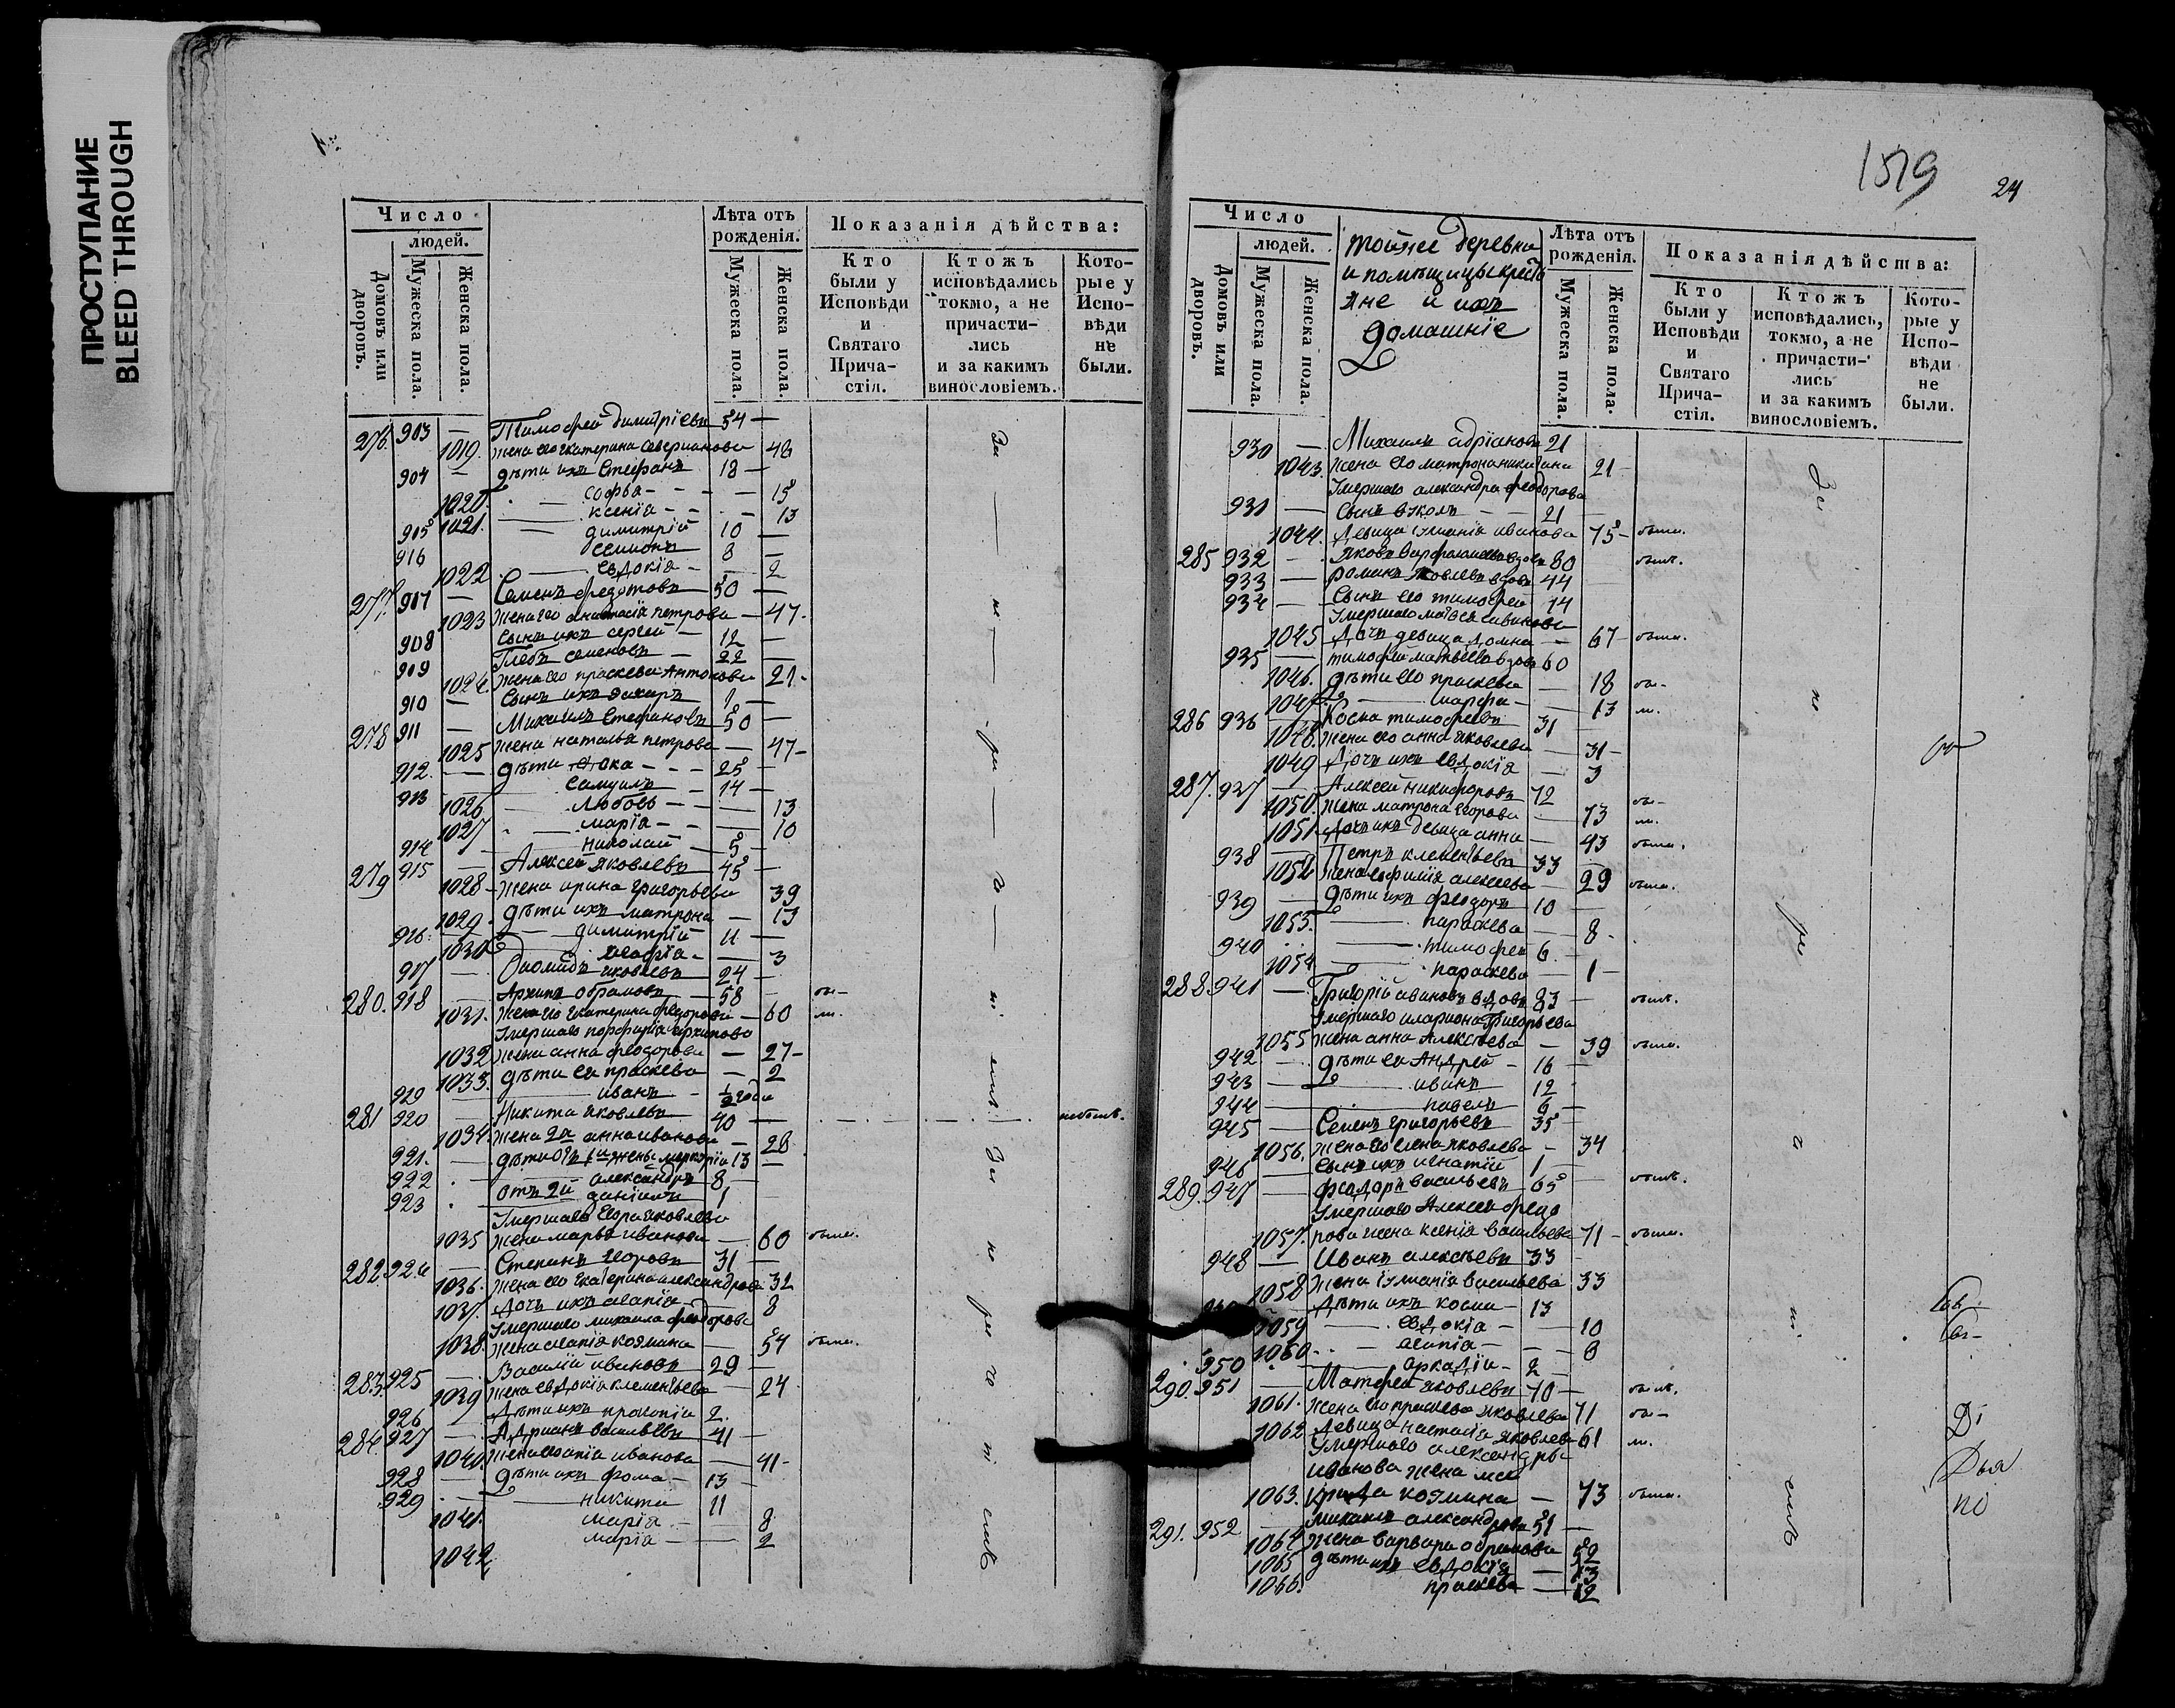 ПРОСТУПАНИЕ
BLEED THROUGH
Число
людей.
Домовъ или дворовъ.
Мужеска пола.
Женска пола.
Лѣта отъ рожденія.
Мужеска пола.
Женска пола.
Показанія дѣйства:
Кто были у Исповѣди и Святаго Прича-стія.
Ктожъ исповѣдались токмо, а не причасти-лись и за какимъ винословіемъ.
Кото-рые у Испо-вѣди не были.
276. 903 — Тимофей Димитріевъ 54 —
1019. жена его екатерина Северианова 48
904 — дѣти ихъ Стефанъ 18 —
1020. софья — 15
1021. ксенія — 13
905 димитрій 10 —
916 семионъ 8 —
1022 евдокія — 2
277. 907 — Семенъ федотовъ 50 —
1023 жена его анастасія петрова — 47
908 сынъ ихъ сергей — 12 —
909 Глебъ семеновъ — 22 —
1024. жена его праскева Антонова 21
910 — сынъ ихъ захаръ 1 —
278 911 — Михаилъ Стефановъ 50 —
1025 жена наталья петрова — 47
912. — дѣти фока — 25 —
913 самуилъ — 14 —
1026 любовь — 13
1027 марія — 10
914 николай — 5 —
279 915 — Алексей яковлевъ 45 —
1028 жена ирина григорьева 39
1029. дѣти ихъ матрона — 13
916. димитрій 11 —
1030 агафія — 3
917 — Диомидъ яковлевъ 24 —
280. 918 — Архипъ обрамовъ — 58 — бы-
1031. жена его екатерина федорова — 60 ли.
Умершаго порфирія архипова
1032 жена анна феодорова — 27
1033. дѣти ея праскева — 2
919 иванъ — ½ года
281 920 — Никита яковлевъ 40 — небылъ.
1034. жена 2я анна иванова — 28
921. — дѣти отъ 1й жены меркурій 13 —
922 александръ 8 —
923 отъ 2й даніилъ 1
Умершаго егора яковлева
1035 жена марья иванова — 60 была.
282. 924 — Степанъ егоровъ 31 —
1036. жена его екатерина александрова 32
1037. дочь ихъ агапія — 8
Умершаго михаила феодорова
1038. жена агапія козмина — 54 была.
283. 925 — Василій ивановъ 29 —
1039 жена евдокія клементьева — 24
926 дѣти ихъ прокопій 2.
284. 927 — Адрианъ васильевъ 41 —
1040. жена агапія иванова — 41
928 — дѣти ихъ фома — 13 —
929 никита 11
1041. марія — 8
1042 марія — 2
Зи не ре че ні емъ.
Зи не ре че ні емъ
1519
24
Число
людей.
Домовъ или дворовъ.
Мужеска пола.
Женска пола.
тойжее деревни и помѣщицы кресть яне и ихъ домашніе
Лѣта отъ рожденія.
Мужеска пола.
Женска пола.
Показанія дѣйства:
Кто были у Исповѣди и Святаго Прича-стія.
Ктожъ исповѣдались, токмо, а не причасти-лись и за какимъ винословіемъ.
Кото-рые у Испо-вѣди не были.
930 — Михаилъ адріановъ 21
1043. жена его матрона никитина 21
Умершаго александра феодорова
931 — сынъ вуколъ — 21 —
1044. девица іулианія иванова 75 была.
285 932 — Яковъ варфоломеевъ вдовъ 80 былъ.
933 — романъ яковлевъ вдовъ 44
934 — сынъ его тимофей 14
Умершаго матвея савинова
1045 дочь девица домна — 67 была.
935 — тимофей матвеевъ вдовъ 60
1046. дѣти его праскева — 18 бы-
1047. марфа — 13 ли.
286 936 — Косма тимофеевъ 31 —
1048. жена его анна яковлева — 31
1049 дочь ихъ евдокія — 3
287. 937 — Алексей никифоровъ 72 бы-
1050. жена матрона егорова — 73 ли.
1051. дочь ихъ девица анна — 43 была.
938 — Петръ клементьевъ 33 —
1052 жена евфимія алексеева — 29 была.
939 — дѣти ихъ феодоръ 10 —
1053. параскева — 8
940 тимофей 6 —
1054 параскева — 1
288. 941 — Григорій ивановъ вдовъ 83 — былъ.
Умершаго илариона Григорьева
1055 жена анна Алексѣева — 39 была.
942. — дѣти ея Андрей — 16 —
943 — иванъ 12
944 — павелъ 6 —
945 — Семенъ григорьевъ 35 —
1056. жена его елена яковлева — 34
946 — сынъ ихъ игнатій 1 —
289. 947 — феодоръ васильевъ 65 — былъ.
Умершаго Алексея федо
1057. рова жена ксенія васильева 71 — была.
948 — Иванъ алексѣевъ 33 —
1058 жена іулианія васильева 33
дѣти ихъ косма — 13
1059 евдокія — 10
1060. агапія — 8
950 аркадій — 2 —
290. 951 — Матфей яковлевъ 70 — былъ.
1061. жена его праскева яковлева 71 бы-
1062 девица настасія яковлева 61 ли.
Умершаго александра
иванова жена
1063. козмина — 73 была.
291. 952 — михаилъ александровъ 51 —
1064 жена варвара обрамова 52
1065 дѣти ихъ евдокія — 13
1066. праскева — 12
Зи не ре че ні емъ